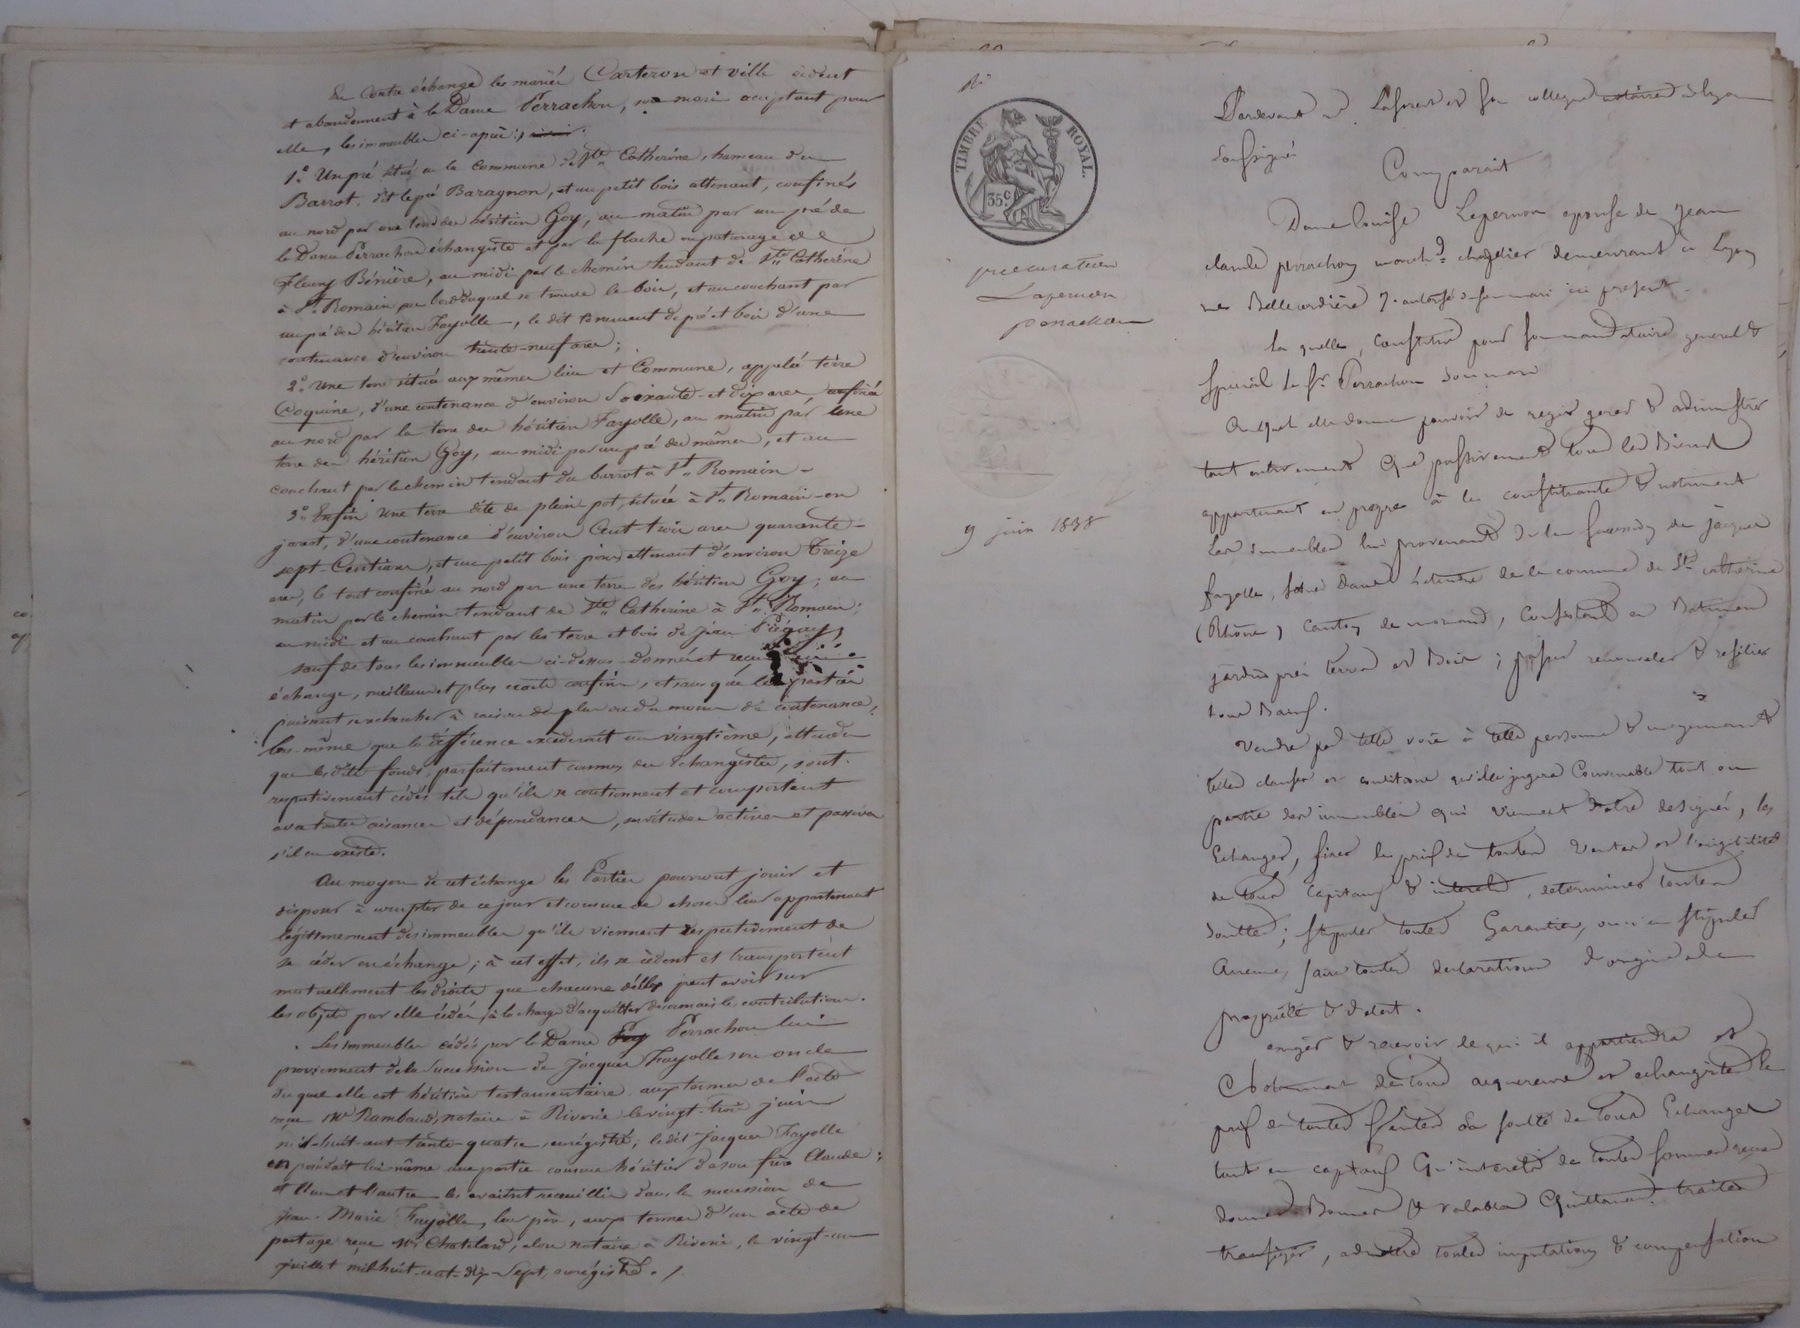 En contre échange les mariés Carteron et ville cèdent
et abandonnent à la Dame Perrachon, son mari acceptant pour
elle, les immeubles ci-après:
1° Un pré situé en la commune de Ste Catherine, hameau du
Barrot, dit le pré Baragnon, et un petit bois attenant, confinés
au nord par une terre des héritiers Goy, au matin par un pré de
la Dame Perrachon échangiste et par la flache ou paturage de
Fleury Bénière, au midi par le chemin tendant de Ste Catherine
à St Romain au bord duquel se trouve le bois, et au couchant par
un pré des héritiers Fayolle, le dit tènement de pré et bois d'une
contenance d'environ trente-neuf ares;
2° Une terre située aux mêmes lieu et Commune, appelée terre
Coquine, d'une contenance d'environ Soixante-et-dix ares, confinée
au nord par la terre des héritiers Fayolle, au matin par une
terre des héritiers Goy, au midi par un pré des mêmes, et au
couchant par le chemin tendant du barrot à St Romain -
3° Enfin Une terre dite de plein pot, située à St Romain-en
jarest, d'une contenance d'environ Cent trois ares quarante-
sept-Centiares, et un petit bois pins attenant d'environ Treize
ares, le tout confiné au nord par une terre des héritiers Goy; au
matin par le chemin tendant de Ste Catherine à St Romain;
au midi et au couchant par les terre et bois de jean
Sauf de tous les immeubles ci-dessus donnés et reçus
échange, meilleurs et plus exacts confins, et sans que les parties
puissent se rechercher à raison du plus ou du moins de contenance,
lors-même que la différence excéderait un vingtième, attendu
que les dits fonds, parfaitement connus des échangistes, sont
respectivement cédés tels qu'ils se contiennent et comportent
avec toutes aisances et dépendances, servitudes actives et passives
s'il en existe.
Au moyen de cet échange les Parties pourront jouir et
disposer à compter de ce jour et comme de choses leur appartenant
légitimement des immeubles qu'ils viennent respectivement de
se céder en échange; à cet effet, ils se cèdent et transportent
mutuellement les droits que chacune d'elles peut avoir sur
les objets par elle cédés, à la charge d'acquitter désormais les contributions.
Les immeubles cédés par la Dame Goy Perrachon lui
proviennent de la Succession de Jacques Fayolle son oncle
duquel elle est héritière testamentaire aux termes de l'acte
reçu Me Rambaud, notaire à Riverie le vingt-trois juin
mil-huit-cent-trente-quatre, enrégistré; le dit Jacques Fayolle
en possédait lui-même une partie comme héritier de son frère Claude;
et l'un et l'autre les avaient recueillis dans la succession de
jean-Marie Fayolle, leur père, aux termes d'un acte de
partage reçu Me Chatelard, alors notaire à Riverie, le vingt-un
juillet mil huit-cent-dix-Sept, enrégistré. /.
TIMBRE ROYAL.
35c
procuration
Lapernon
perrachon
9 juin 1838
Pardevant Me Laforest et son collegue notaires à lyon
Soussignés
Comparait
Dame Louise Lapernon epouse de Jean
claude perrachon march.d chapelier demeurant à Lyon
rue Bellecordière 7. autorisée de son mari ici present.
La quelle, Constitue pour son mandataire général &
Spécial le Sr Perrachon son mari
Auquel elle donne pouvoir de regir gerer & administrer
tant activement que passivement tous les Biens
appartenant en propre à la constituante & notamment
les immeubles lui provenant de la succession de jacques
fayolle, situés dans l'étendue de la commune de Ste catherine
(Rhône) canton de mornand, consistant en Batimens
jardins prés terres et Bois; passer renouveler & resilier
tous Baux.
Vendre par telle voie à telles personnes & moyennant
telles clauses et conditions qu'il jugera Convenable tout ou
partie des immeubles qui viennent d'etre designés, les
Echanger, fixer le prix de toutes Ventes et l'exigibilité
de tous capitaux & interets, determiner toutes
soultes; stipuler toutes Garanties, ou n'en stipuler
Aucune, faire toutes declarations d'origine de
propriété & d'etat.
exiger & recevoir le qui il appartiendra et
notamment de tous acquereurs et echangistes le
prix de toutes Ventes ou soulte de tous Echanges
tant en capitaux qu'interets de toutes sommes reçues
donner Bonnes & valables Quittances. traiter
transiger, admettre toutes imputations & compensation